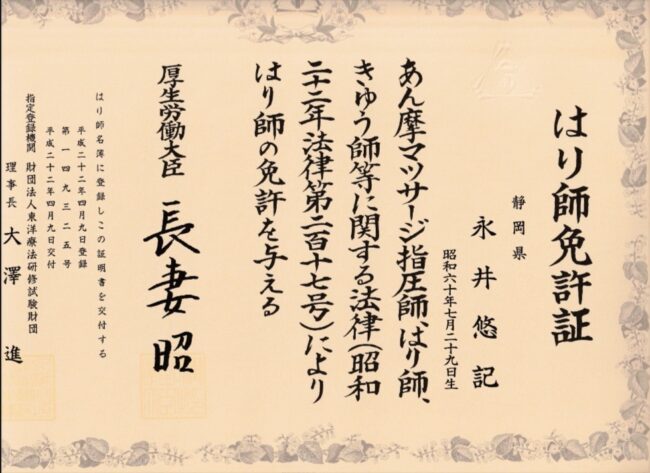 はり師免許証
静岡県
永井悠記
昭和六十年七月二十九日生
あん摩マッサージ指圧師、はり師、
きゆう師等に関する法律(昭和
二十二年法律第二百十七号)により
はり師の免許を与える
厚生労働大臣 長妻昭
はり師名簿に登録しこの証明書を交付する
平成二十二年四月九日登録
第一四九三二五号
平成二十二年四月九日交付
指定登録機関 財団法人東洋療法研修試験財団
理事長 大澤進